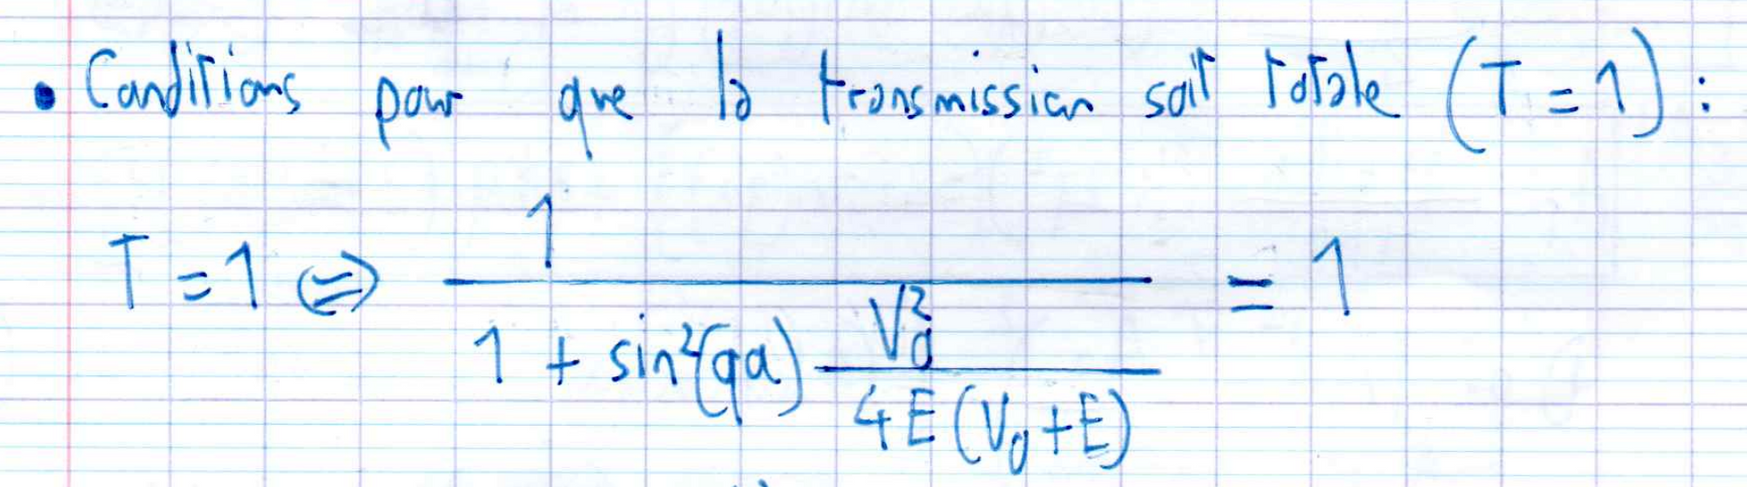 • Conditions pour que la transmission soit totale (T = 1) :
T = 1 ⇔ 1 / (1 + sin²(qa) V₀² / (4E(V₀+E))) = 1